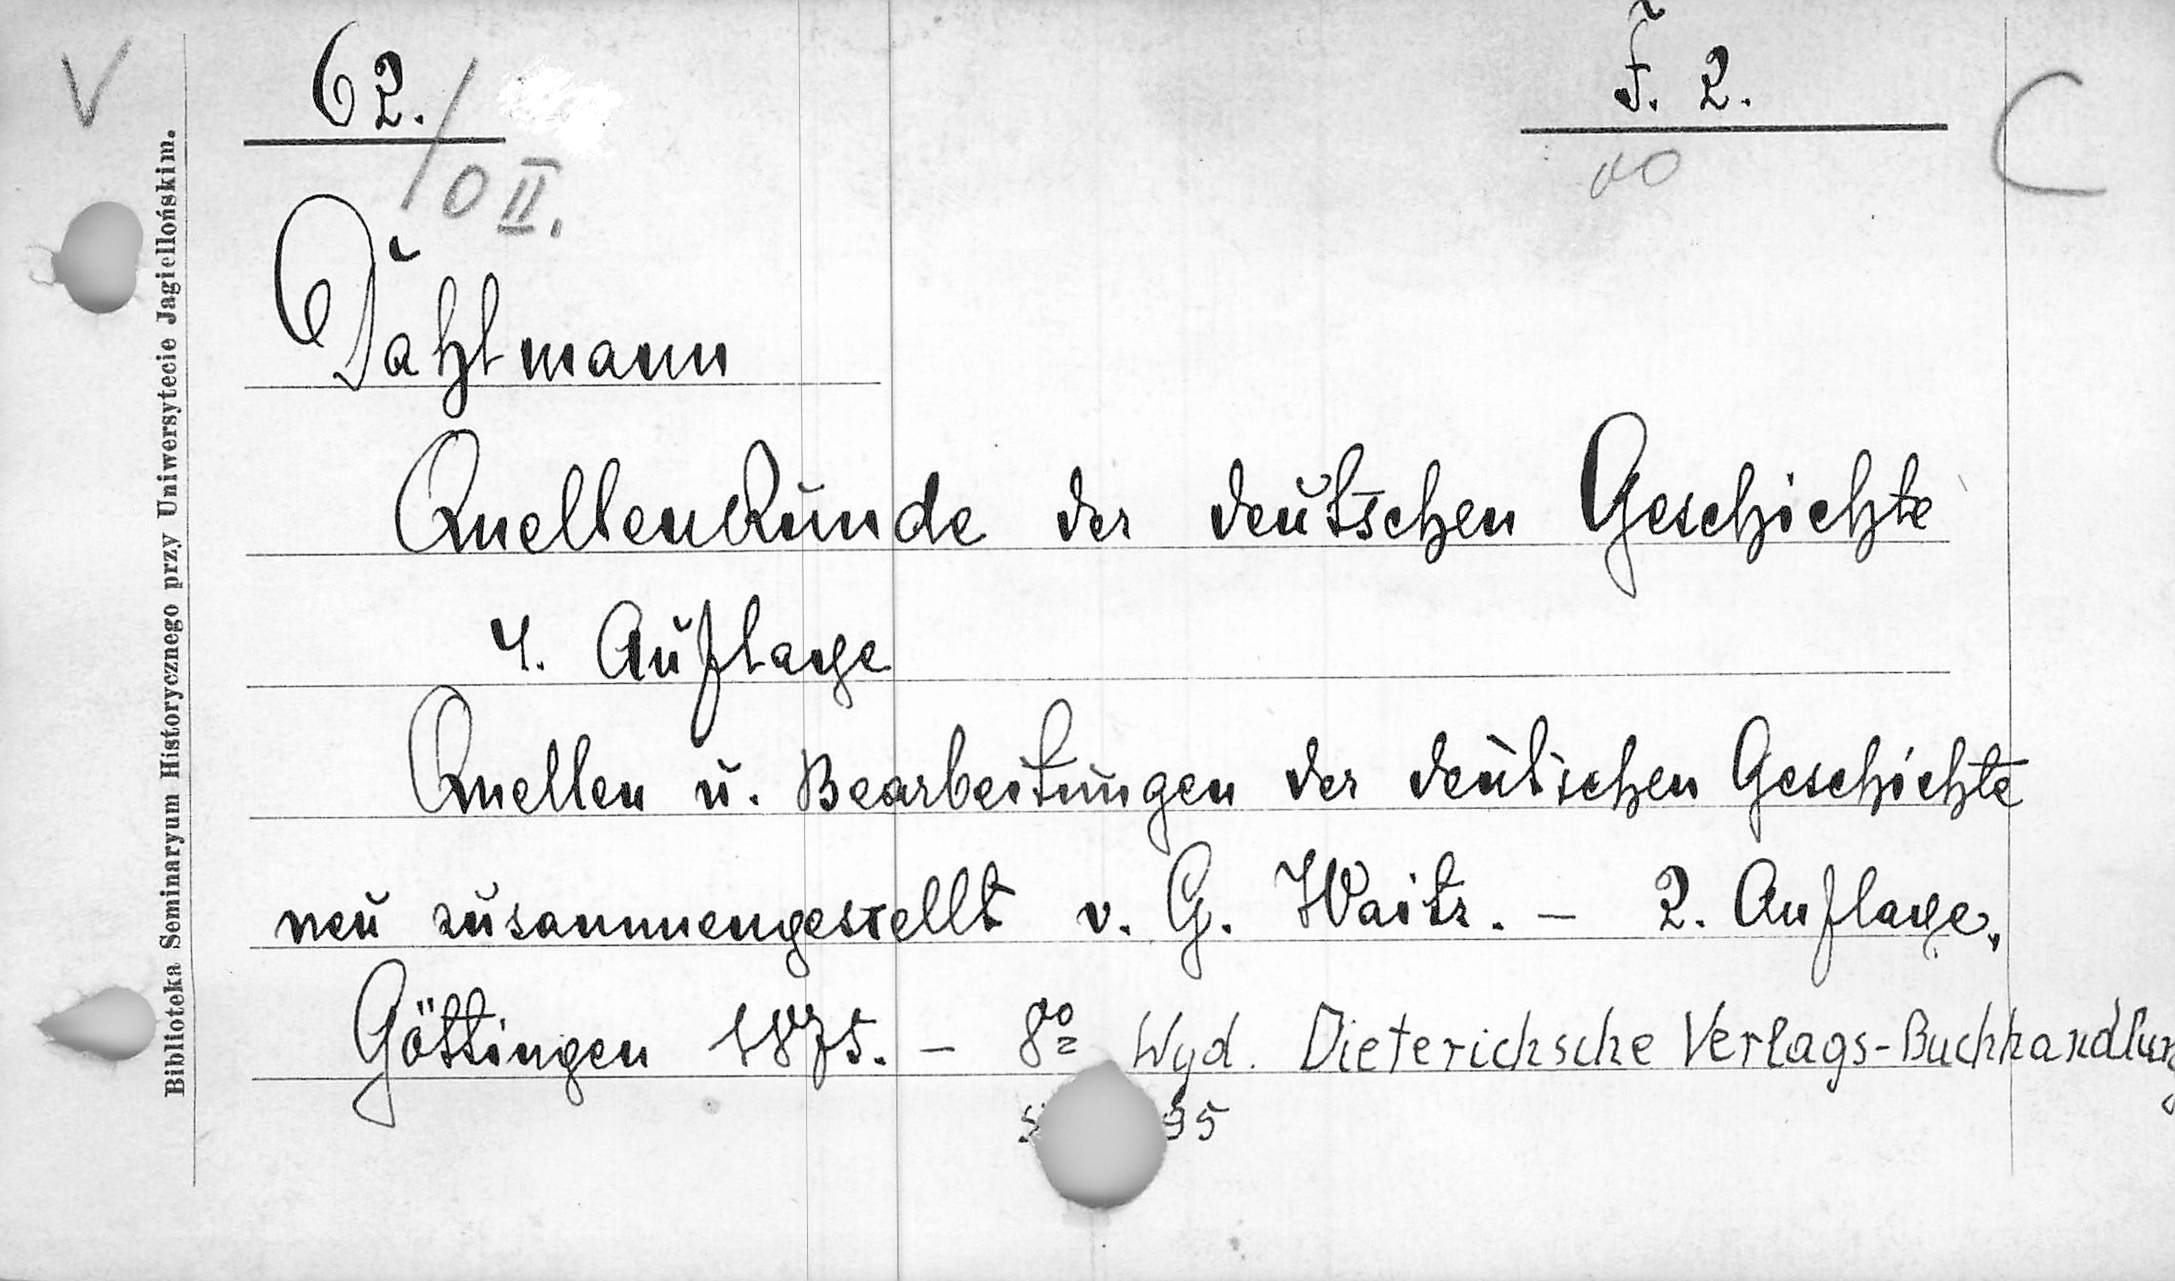 V
62.
F. 2.
C
/0 II.
Dahlmann
Quellenkunde der deutschen Geschichte
4. Auflage
Quellen u. Bearbeitungen der deutschen Geschichte
neu zusammengestellt v. G. Waitz. – 2. Auflage.
Göttingen 1875. – 8º Wyd. Dieterichsche Verlags-Buchhandlung
95
Biblioteka Seminaryum Historycznego przy Uniwersytecie Jagiellońskim.